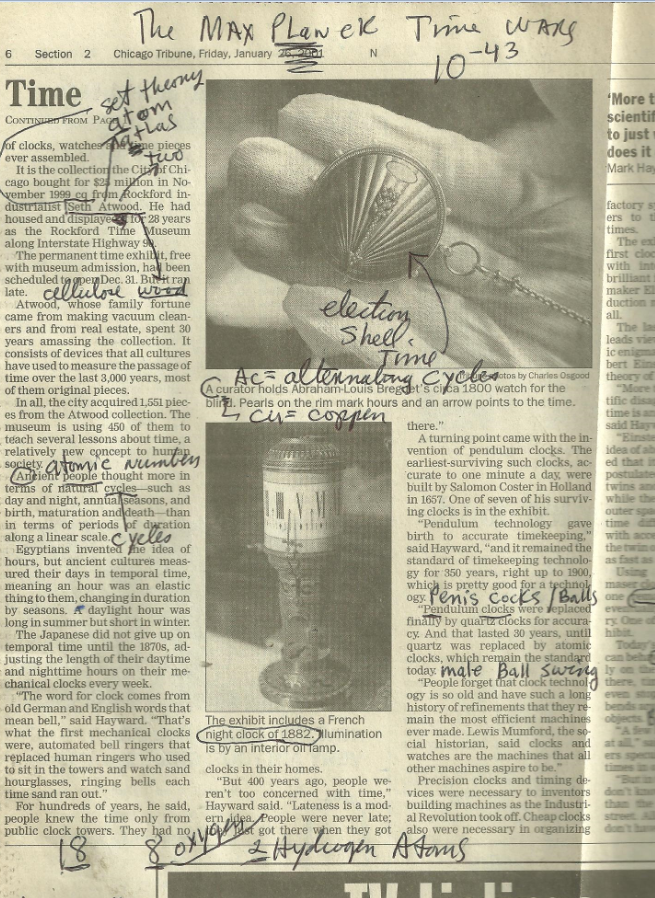 The MAX PLANCK Time WARS
6 Section 2 Chicago Tribune, Friday, January 26, 2001 N
10-43
Time
CONTINUED FROM PAGE
set theory
atom
atlas
two
of clocks, watches and time pieces
ever assembled.
It is the collection the City of Chi-
cago bought for $25 million in No-
vember 1999 cq from Rockford in-
dustrialist Seth Atwood. He had
housed and displayed it for 28 years
as the Rockford Time Museum
along Interstate Highway 90.
The permanent time exhibit, free
with museum admission, had been
scheduled to open Dec. 31. But it ran
late.
cellulose wood
Atwood, whose family fortune
came from making vacuum clean-
ers and from real estate, spent 30
years amassing the collection. It
consists of devices that all cultures
have used to measure the passage of
time over the last 3,000 years, most
of them original pieces.
In all, the city acquired 1,551 piec-
es from the Atwood collection. The
museum is using 450 of them to
teach several lessons about time, a
relatively new concept to human
society.
atomic number
Ancient people thought more in
terms of natural cycles—such as
day and night, annual seasons, and
birth, maturation and death—than
in terms of periods of duration
along a linear scale.
cycles
Egyptians invented the idea of
hours, but ancient cultures meas-
ured their days in temporal time,
meaning an hour was an elastic
thing to them, changing in duration
by seasons. A daylight hour was
long in summer but short in winter.
The Japanese did not give up on
temporal time until the 1870s, ad-
justing the length of their daytime
and nighttime hours on their me-
chanical clocks every week.
"The word for clock comes from
old German and English words that
mean bell," said Hayward. "That's
what the first mechanical clocks
were, automated bell ringers that
replaced human ringers who used
to sit in the towers and watch sand
hourglasses, ringing bells each
time sand ran out."
For hundreds of years, he said,
people knew the time only from
public clock towers. They had no
election
Shell.
Time
photos by Charles Osgood
AC = alternating cycles
A curator holds Abraham-Louis Breguet's circa 1800 watch for the
blind. Pearls on the rim mark hours and an arrow points to the time.
cu = copper
The exhibit includes a French
night clock of 1882. Illumination
is by an interior oil lamp.
clocks in their homes.
"But 400 years ago, people we-
ren't too concerned with time,"
Hayward said. "Lateness is a mod-
ern idea. People were never late;
they just got there when they got
there."
A turning point came with the in-
vention of pendulum clocks. The
earliest-surviving such clocks, ac-
curate to one minute a day, were
built by Salomon Coster in Holland
in 1657. One of seven of his surviv-
ing clocks is in the exhibit.
"Pendulum technology gave
birth to accurate timekeeping,"
said Hayward, "and it remained the
standard of timekeeping technolo-
gy for 350 years, right up to 1900,
which is pretty good for a technol-
ogy.
Penis cocks / Balls
"Pendulum clocks were replaced
finally by quartz clocks for accura-
cy. And that lasted 30 years, until
quartz was replaced by atomic
clocks, which remain the standard
today.
male Ball Swing
"People forget that clock technol-
ogy is so old and have such a long
history of refinements that they re-
main the most efficient machines
ever made. Lewis Mumford, the so-
cial historian, said clocks and
watches are the machines that all
other machines aspire to be."
Precision clocks and timing de-
vices were necessary to inventors
building machines as the Industri-
al Revolution took off. Cheap clocks
also were necessary in organizing
'More t
scientif
to just
does it
Mark Hay
factory s
ers to t
times.
18 8 oxygen 2 Hydrogen Atoms